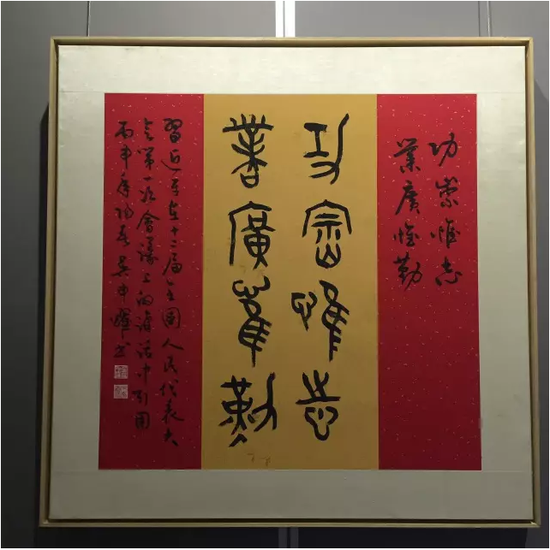 功崇惟志
業廣惟勤
功崇惟志
業廣惟勤
習近平在十二届全國人民代表大
會第一次會議上的講話中引用
丙申年初春吳申耀書